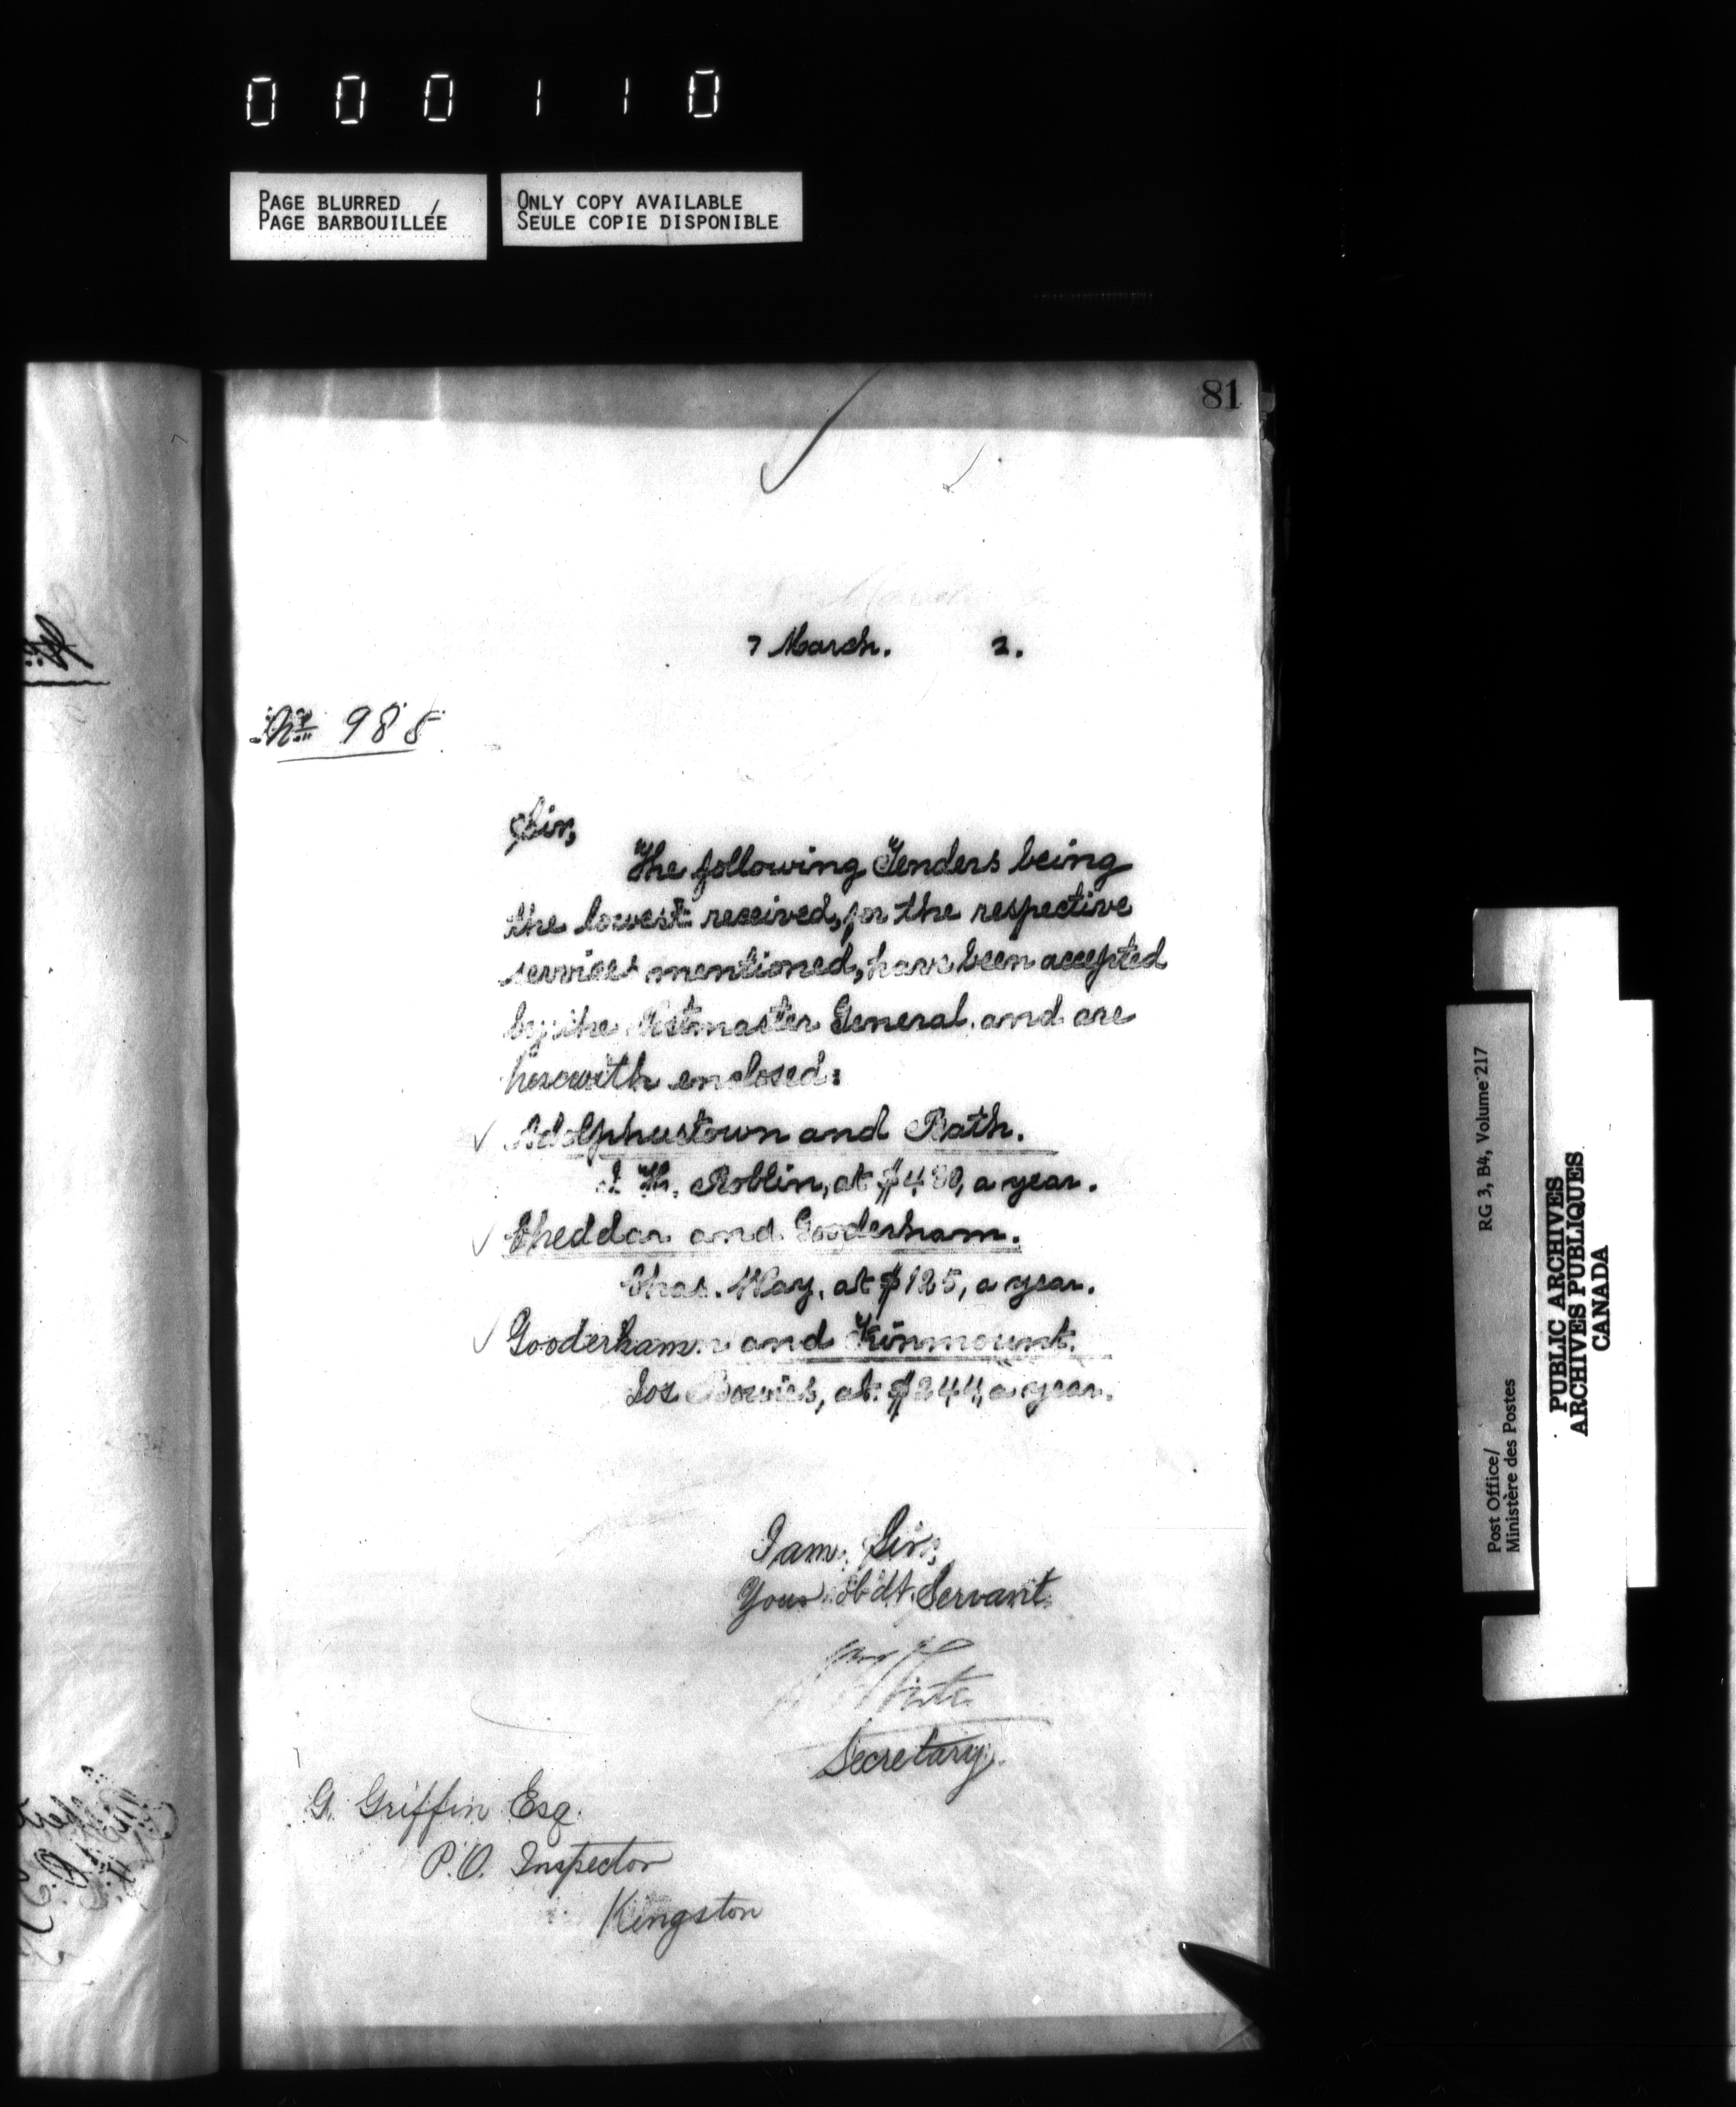 000110
PAGE BLURRED /
PAGE BARBOUILLÉE
ONLY COPY AVAILABLE
SEULE COPIE DISPONIBLE
81
7 March. 2.
No 985
Sir,
The following Tenders being
the lowest received, for the respective
services mentioned, have been accepted
by the Postmaster General, and are
herewith enclosed:
Adolphustown and Bath.
Roblin, at $480, a year.
Cheddar and Gooderham.
Chas. Way, at $125, a year.
Gooderham and Kinmount.
at $244, a year.
I am, Sir,
Your obdt. Servant
Secretary.
G. Griffin Esq.
P.O. Inspector
Kingston
RG 3, B4, Volume 217
Post Office/
Ministère des Postes
PUBLIC ARCHIVES
ARCHIVES PUBLIQUES
CANADA